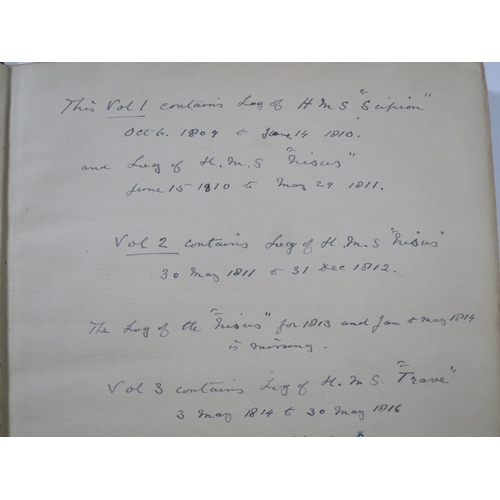 This Vol 1 contains Log of H M S "Scipion"
Oct 6. 1809 to June 14 1810.
and Log of H.M.S "Nisus"
June 15 1810 to May 29 1811.
Vol 2 contains Log of H.M.S "Nisus"
30 May 1811 to 31 Dec 1812.
The Log of the "Nisus" for 1813 and Jan to May 1814
is missing.
Vol 3 contains Log of H.M.S. "Trave"
3 May 1814 to 30 May 1816